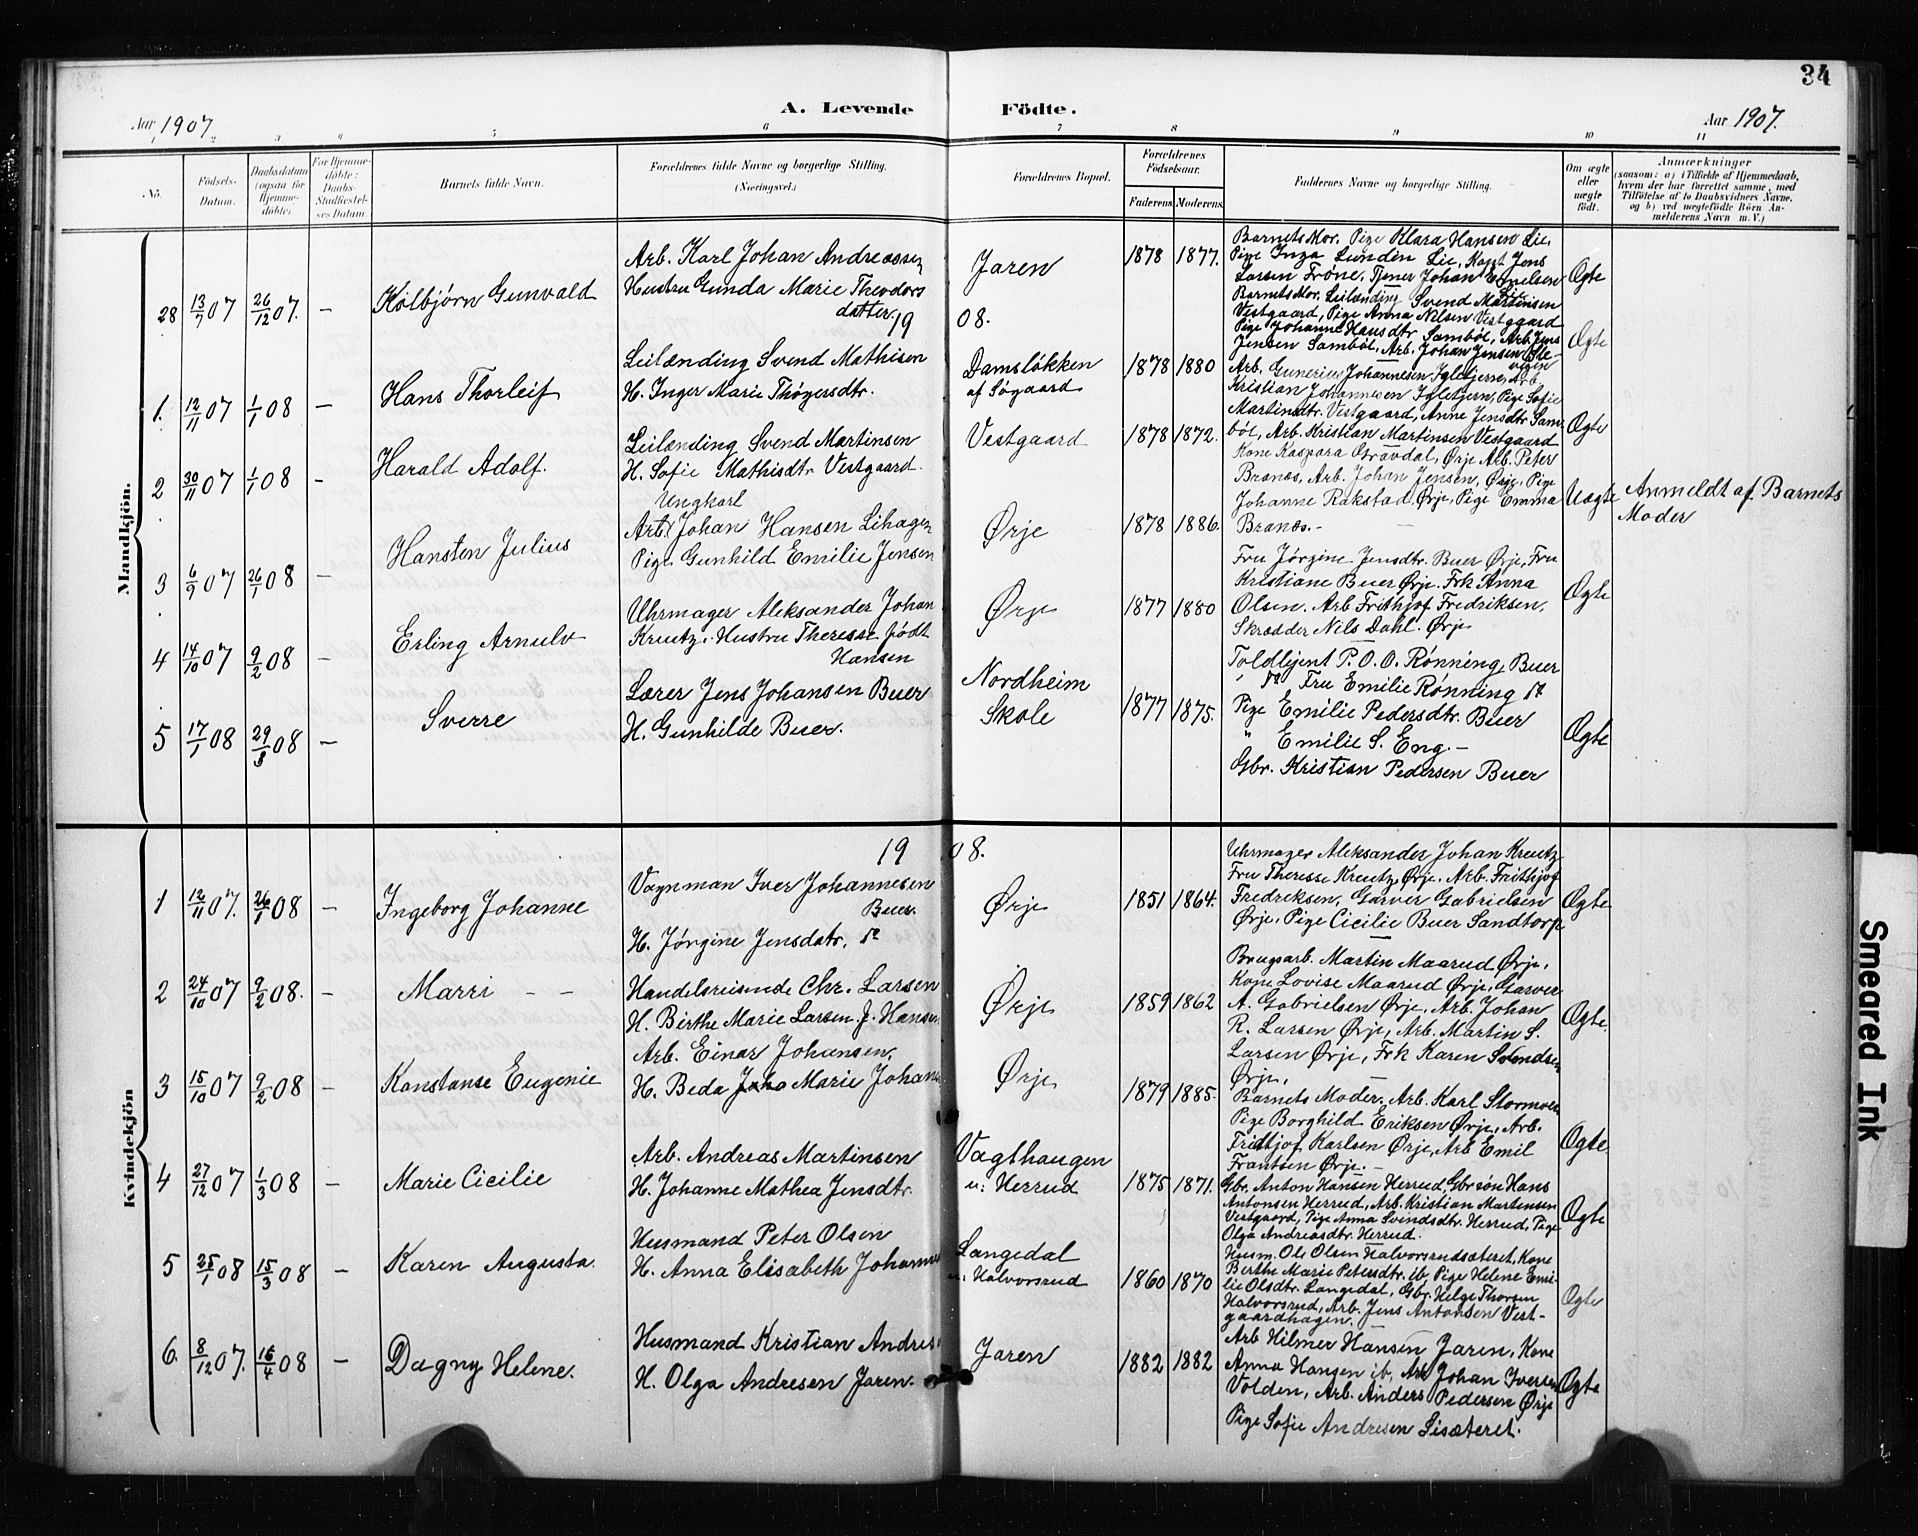 34
A. Levende Födte.
Aar 1907.
Aar 1907.
1 2 3 4 5 6 7 8 9 10 11
No.
Födsels-Datum.
Daabsdatum (ogsaa for Hjemme-döbte).
For Hjemme-döbte: Daabs-Stadfæstel-ses Datum.
Barnets fulde Navn.
Forældrenes fulde Navne og borgerlige Stilling. (Næringsvei.)
Forældrenes Bopæl.
Forældrenes Födselsaar.
Faderens Moderens
Faddernes Navne og borgerlige Stilling.
Om ægte eller uægte födt.
Anmærkninger
(saasom: a) i Tilfælde af Hjemmedaab,
hvem der har forrettet samme, med
Tilföielse af to Daabsvidners Navne.
og b) ved uægtefödte Börn An-
melderens Navn m. V.)
Mandkjön.
28 13/7 07 26/12 07. — Kolbjørn Gunvald
Arb. Karl Johan Andreassen
Hustru Gunda Marie Theodors
datter.
Jaren
1878 1877.
Barnets Mor. Pige Klara Hansen Lie,
Pige Inga Lundin Lie, Kapt Jens
Larsen Frøne, Tjener Johan Engelsen
Ægte
1908.
1. 12/11 07 1/1 08 — Hans Thorleif
Leilænding Svend Mathisen
H. Inger Marie Thøgersdtr.
Damsløkken
af Søgaard
1878 1880
Barnets Mor, Leilænding Svend Martinsen
Vestgaard, Pige Anna Nilsen Vestgaard
Pige Johanne Hansdtr Sambøl, Arb. Jens
Jensen Sambøl, Arb. Johan Jensen
Ægte
2 30/11 07 1/1 08 — Harald Adolf.
Leilænding Svend Martinsen
H. Sofie Mathisdtr Vestgaard.
Vestgaard
1878 1872.
Arb. Gunerius Johannesen Igletjern, Arb.
Kristian Johannesen Igletjern, Pige Sofie
Martinsdtr. Vestgaard, Anne Jensdtr Sam-
bøl, Arb. Kristian Martinsen Vestgaard
Ægte
3 6/9 07 26/1 08 — Hansten Julius
Ungkarl
Arb. Johan Hansen Lihagen
Pige Gunhild Emilie Jensen
Ørje
1878 1886.
Kone Kaspara Gravdal, Ørje Arb. Peter
Brænæs, Arb. Johan Jensen, Ørje, Pige
Johanne Rakstad Ørje, Pige Emma
Brænæs. —
Uægte
Anmeldt af Barnets
Moder
4 14/10 07 9/2 08 — Erling Arnulv
Uhrmager Aleksander Johan
Kreutz. Hustru Theresse født
Hansen
Ørje
1877 1880
Fru Jørgine Jensdtr. Buer Ørje, Fru
Kristiane Buer Ørje. Frk Anna
Olsen. Arb Frithjof Fredriksen,
Skrædder Nils Dahl. Ørje
Ægte
5 17/1 08 29/3 08 — Sverre
Lærer Jens Johansen Buer
H. Gunhilde Buer.
Nordheim
Skole
1877 1875.
Toldbtjent P. O. O. Rønning, Buer
" Fru Emilie Rønning
Pige Emilie Pedersdtr. Buer
" Emilie S. Eng. —
Gbr. Kristian Pedersen Buer
Ægte
Kvindekjön
1908.
1 12/11 07. 26/1 08 — Ingeborg Johanne
Vognman Iver Johannesen
Buer.
H. Jørgine Jensdatr.
Ørje
1851 1864.
Uhrmager Aleksander Johan Kreutz
Fru Theresse Kreutz, Ørje, Arb. Frithjof
Fredriksen, Garver Gabrielsen
Ørje, Pige Cicilie Buer Sandtorp
Ægte
2 24/10 07 9/2 08. — Marri — —
Handelsreisende Chr. Larsen
H. Birthe Marie Larsen f. Hansen
Ørje
1859 1862
Brugsarb. Martin Maarud Ørje,
Kone Lovise Maarud Ørje, Garver
A. Gabrielsen Ørje, Arb. Johan
R. Larsen Ørje, Arb. Martin S.
Larsen Ørje, Frk Karen Svendsen
Ørje,
Ægte.
3 15/10 07 9/2 08 — Konstanse Eugenie
Arb. Einar Johansen,
H. Beda Marie Johan
Ørje
1879 1885.
Barnets Moder, Arb. Karl Stormoen
Pige Borghild Eriksen Ørje, Arb.
Fridtjof Karlsen Ørje, Arb Emil
Frantsen Ørje. —
Ægte
4 27/12 07 1/3 08 — Marie Cicilie
Arb. Andreas Martinsen
H. Johanne Mathea Jensdtr.
Vagthaugen
u: Herrud
1875 1871.
Gbr. Anton Hansen Herrud, Gbrsøn Hans
Antonsen Herrud, Arb. Kristian Martinsen
Vestgaard, Pige Anna Svindsdtr. Herrud, Pige
Olga Andreasdtr. Herrud.
Ægte
5 25/1 08 15/3 08 — Karen Augusta.
Husmand Peter Olsen
H. Anna Elisabeth Johanne
Langedal
u: Halvorsrud
1860 1870
Husm. Ole Olsen Halvorsrudsæteret, Kone
Berthe Marie Petersdtr. ib, Pige Helene Emi-
lie Olsdtr. Langedal, Gbr. Helge Thorsen
Halvorsrud, Arb. Jens Antonsen Vest-
gaardhagen.
Ægte
6. 8/12 07. 16/4 08 — Dagny Helene.
Husmand Kristian Andres
H. Olga Andresen Jaren.
Jaren
1882 1882
Arb Hilmer Hansen Jaren, Kone
Anna Hangen ib, Arb Johan Iversen
Volden, Arb. Anders Pedersen Ørje
Pige Sofie Andresen Lisæteret.
Ægte
Smeared Ink